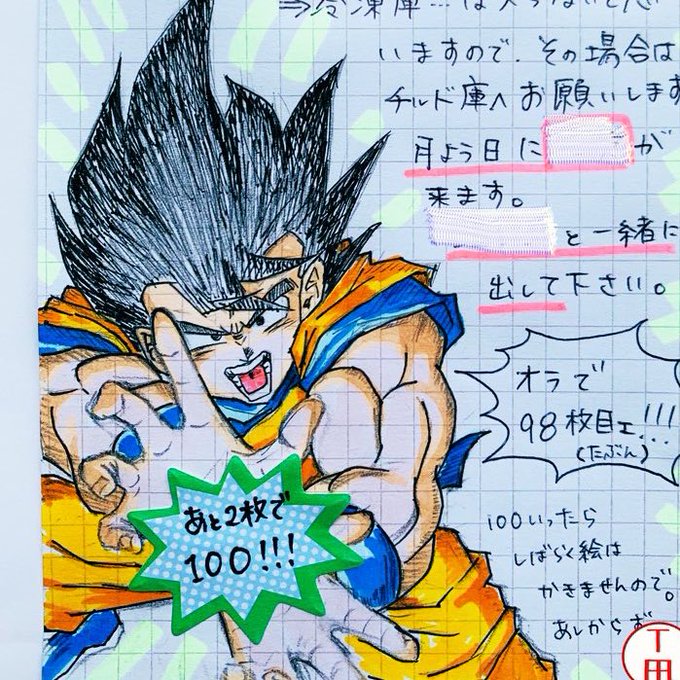 冷凍庫…は入らないと思
いますので、その場合は
チルド庫へお願いします
月よう日に が
来ます。
と一緒に
出して下さい。
オラで
98枚目ェ!!!
(たぶん)
あと2枚で
100!!!
100いったら
しばらく絵は
かきませんので。
あしからず